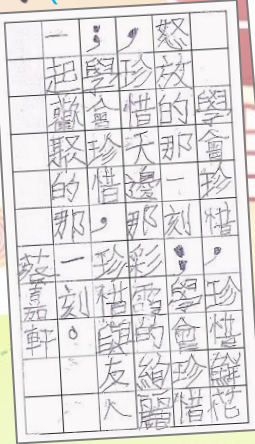 學會珍惜，珍惜鮮花
怒放的那一刻；學會珍惜
，珍惜天邊那彩霞的絢
；學會珍惜，珍惜與友人
一起歡聚的那一刻。
蔡嘉軒